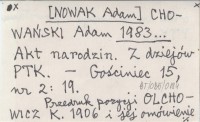 [NOWAK Adam] CHO-
WAŃSKI Adam 1983...
Akt narodzin. Z dziejów
PTK. — Gościniec 15,
nr 2: 19.
Przedruk pozycji OLCHO-
WICZ K. 1906 i jej omówienie